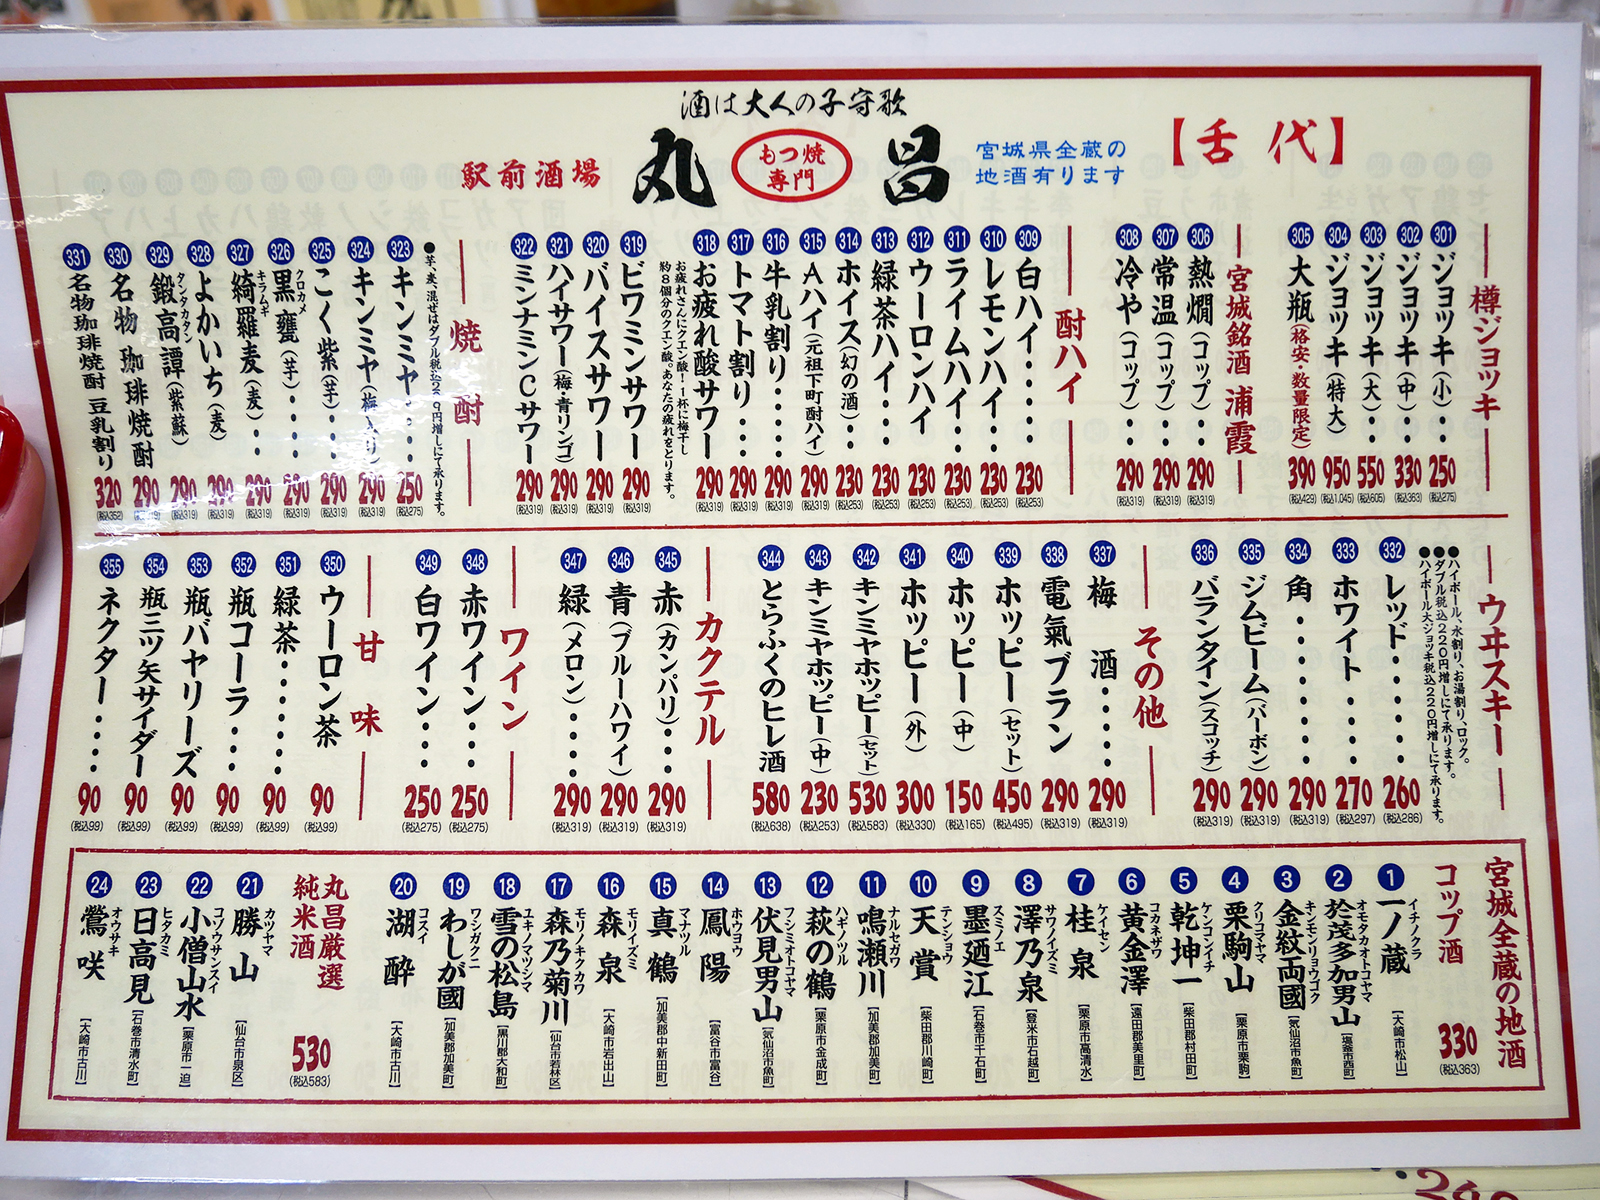 酒は大人の子守歌
駅前酒場
丸昌
もつ焼
専門
宮城県全蔵の
地酒有ります
【舌代】
樽ジョッキ
301 ジョッキ(小)‥ 250 (税込275)
302 ジョッキ(中)‥ 330 (税込363)
303 ジョッキ(大)‥ 550 (税込605)
304 ジョッキ(特大) 950 (税込1,045)
305 大瓶(格安・数量限定) 390 (税込429)
宮城銘酒 浦霞
306 熱燗(コップ)‥ 290 (税込319)
307 常温(コップ)‥ 290 (税込319)
308 冷や(コップ)‥ 290 (税込319)
酎ハイ
309 白ハイ‥‥‥ 230 (税込253)
310 レモンハイ‥ 230 (税込253)
311 ライムハイ‥ 230 (税込253)
312 ウーロンハイ 230 (税込253)
313 緑茶ハイ‥‥ 230 (税込253)
314 ホイス(幻の酒)‥ 230 (税込253)
315 Aハイ(元祖下町酎ハイ) 290 (税込319)
316 牛乳割り‥‥ 290 (税込319)
317 トマト割り‥ 290 (税込319)
318 お疲れ酸サワー 290 (税込319)
お疲れさんにクエン酸!1杯に梅干し
約8個分のクエン酸。あなたの疲れをとります。
319 ビワミンサワー 290 (税込319)
320 バイスサワー 290 (税込319)
321 ハイサワー(梅・青リンゴ) 290 (税込319)
322 ミンナミンCサワー 290 (税込319)
焼酎
●芋、麦、混ぜはダブル税込209円増しにて承ります。
323 キンミヤ‥‥ 250 (税込275)
324 キンミヤ(梅入り) 290 (税込319)
325 こく紫(芋)‥‥ 290 (税込319)
326 黒甕(芋)‥‥ 290 (税込319)
クロカメ
327 綺羅麦(麦)‥ 290 (税込319)
キラムギ
328 よかいち(麦) 290 (税込319)
329 鍛高譚(紫蘇) 290 (税込319)
タンタカタン
330 名物 珈琲焼酎 290 (税込319)
331 名物珈琲焼酎 豆乳割り 320 (税込352)
ウヰスキー
●ハイボール、水割り、お湯割り、ロック。
●ダブル税込220円増しにて承ります。
●ハイボール大ジョッキ税込220円増しにて承ります。
332 レッド‥‥‥‥ 260 (税込286)
333 ホワイト‥‥‥ 270 (税込297)
334 角‥‥‥‥‥ 290 (税込319)
335 ジムビーム(バーボン) 290 (税込319)
336 バランタイン(スコッチ) 290 (税込319)
その他
337 梅 酒‥‥‥ 290 (税込319)
338 電氣ブラン 290 (税込319)
339 ホッピー(セット) 450 (税込495)
340 ホッピー(中) 150 (税込165)
341 ホッピー(外) 300 (税込330)
342 キンミヤホッピー(セット) 530 (税込583)
343 キンミヤホッピー(中) 230 (税込253)
344 とらふくのヒレ酒 580 (税込638)
カクテル
345 赤(カンパリ)‥‥ 290 (税込319)
346 青(ブルーハワイ) 290 (税込319)
347 緑(メロン)‥‥ 290 (税込319)
ワイン
348 赤ワイン‥‥ 250 (税込275)
349 白ワイン‥‥ 250 (税込275)
甘味
350 ウーロン茶 90 (税込99)
351 緑茶‥‥‥‥ 90 (税込99)
352 瓶コーラ‥‥ 90 (税込99)
353 瓶バヤリーズ 90 (税込99)
354 瓶三ツ矢サイダー 90 (税込99)
355 ネクター‥‥ 90 (税込99)
宮城全蔵の地酒
コップ酒 330 (税込363)
1 一ノ蔵 イチノクラ [大崎市松山]
2 於茂多加男山 オモタカオトコヤマ [塩釜市西町]
3 金紋両國 キンモンリョウゴク [気仙沼市魚町]
4 栗駒山 クリコマヤマ [栗原市栗駒]
5 乾坤一 ケンコンイチ [柴田郡村田町]
6 黄金澤 コガネザワ [遠田郡美里町]
7 桂泉 ケイセン [栗原市高清水]
8 澤乃泉 サワノイズミ [登米市石越町]
9 墨廼江 スミノエ [石巻市千石町]
10 天賞 テンショウ [柴田郡川崎町]
11 鳴瀬川 ナルセガワ [加美郡加美町]
12 萩の鶴 ハギノツル [栗原市金成町]
13 伏見男山 フシミオトコヤマ [気仙沼市魚町]
14 鳳陽 ホウヨウ [富谷市富谷]
15 真鶴 マナツル [加美郡中新田町]
16 森泉 モリイズミ [大崎市岩出山]
17 森乃菊川 モリノキクカワ [仙台市若林区]
18 雪の松島 ユキノマツシマ [黒川郡大和町]
19 わしが國 ワシガクニ [加美郡加美町]
20 湖酔 コスイ [大崎市古川]
丸昌厳選
純米酒 530 (税込583)
21 勝山 カツヤマ [仙台市泉区]
22 小僧山水 コゾウサンスイ [栗原市一迫]
23 日高見 ヒタカミ [石巻市清水町]
24 鶯咲 オウサキ [大崎市古川]